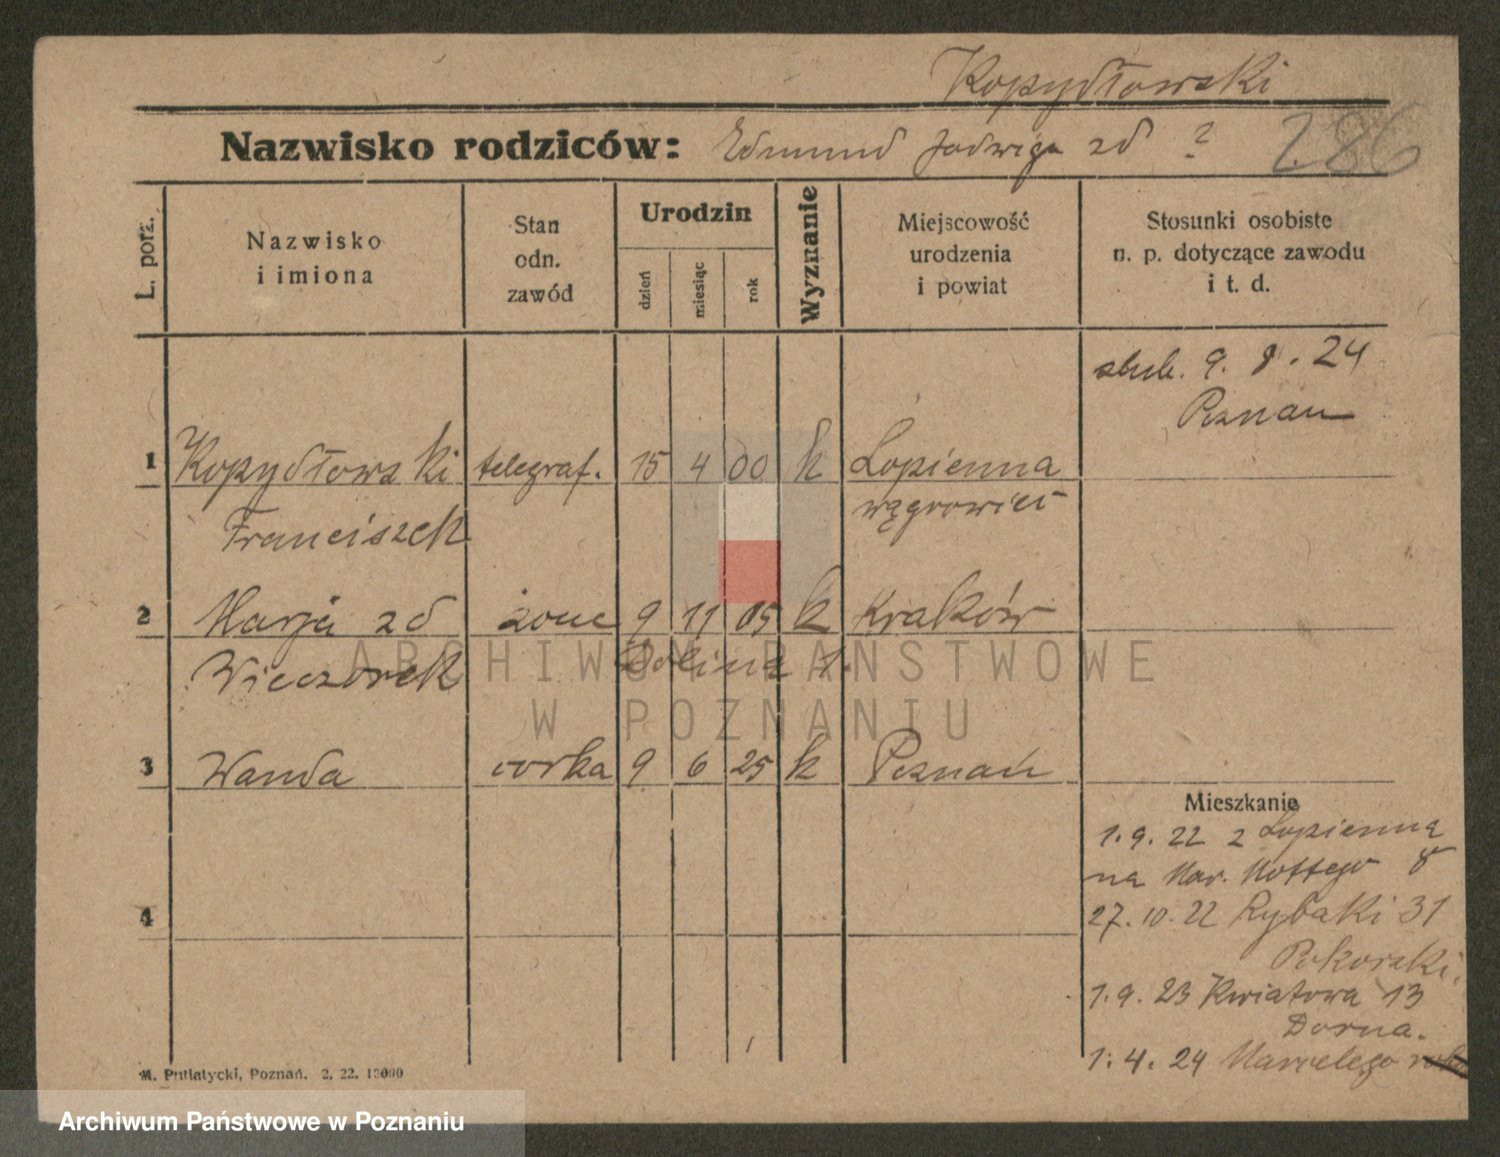 Kopydłowski
Nazwisko rodziców: Edmund Jadwiga zd ? 286
L. porz.
Nazwisko
i imiona
Stan
odn.
zawód
Urodzin
dzień
miesiąc
rok
Wyznanie
Miejscowość
urodzenia
i powiat
Stosunki osobiste
n. p. dotyczące zawodu
i t. d.
ślub. 9. 8. 24
Poznań
1 Kopydłowski telegraf. 15 4 00 k Łopienna
Franciszek wągrowiec
2 Marja zd żona 9 11 05 k Kraków
Wieczorek Dolina
3 Wanda córka 9 6 25 k Poznań
4
Mieszkanie
1.9.22 z Łopienna
na Mar. Mottego 8
27.10.22 Rybaki 31
Pokorski.
1.9.23 Kwiatowa 13
Dorna.
1.4.24 Marcelego
M. Putiatycki, Poznań. 2. 22. 10000
ARCHIWUM PAŃSTWOWE
W POZNANIU
Archiwum Państwowe w Poznaniu